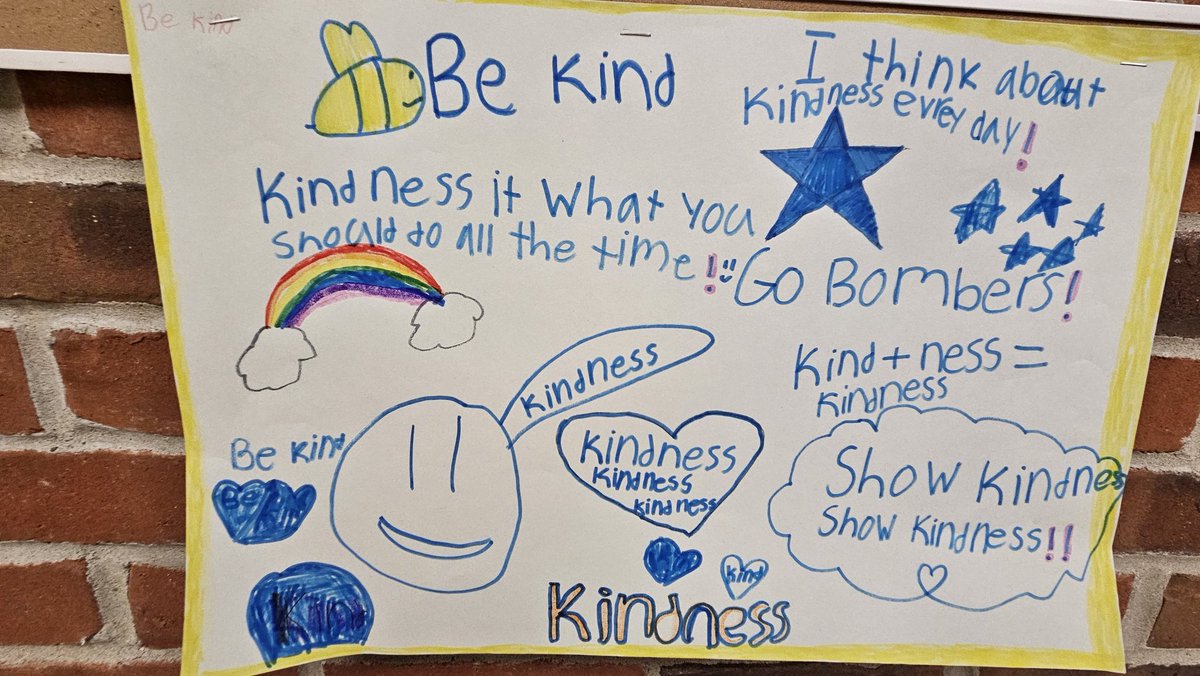 Be kin
Be kind
I think about
kindness evrey day!
kindness it what you
should do all the time!
Go Bombers!
kindness
kind + ness =
kindness
Be kind
Be kind
kindness
kindness
kindness
Show kindness
show kindness!!
kin
kind
kind
kindness